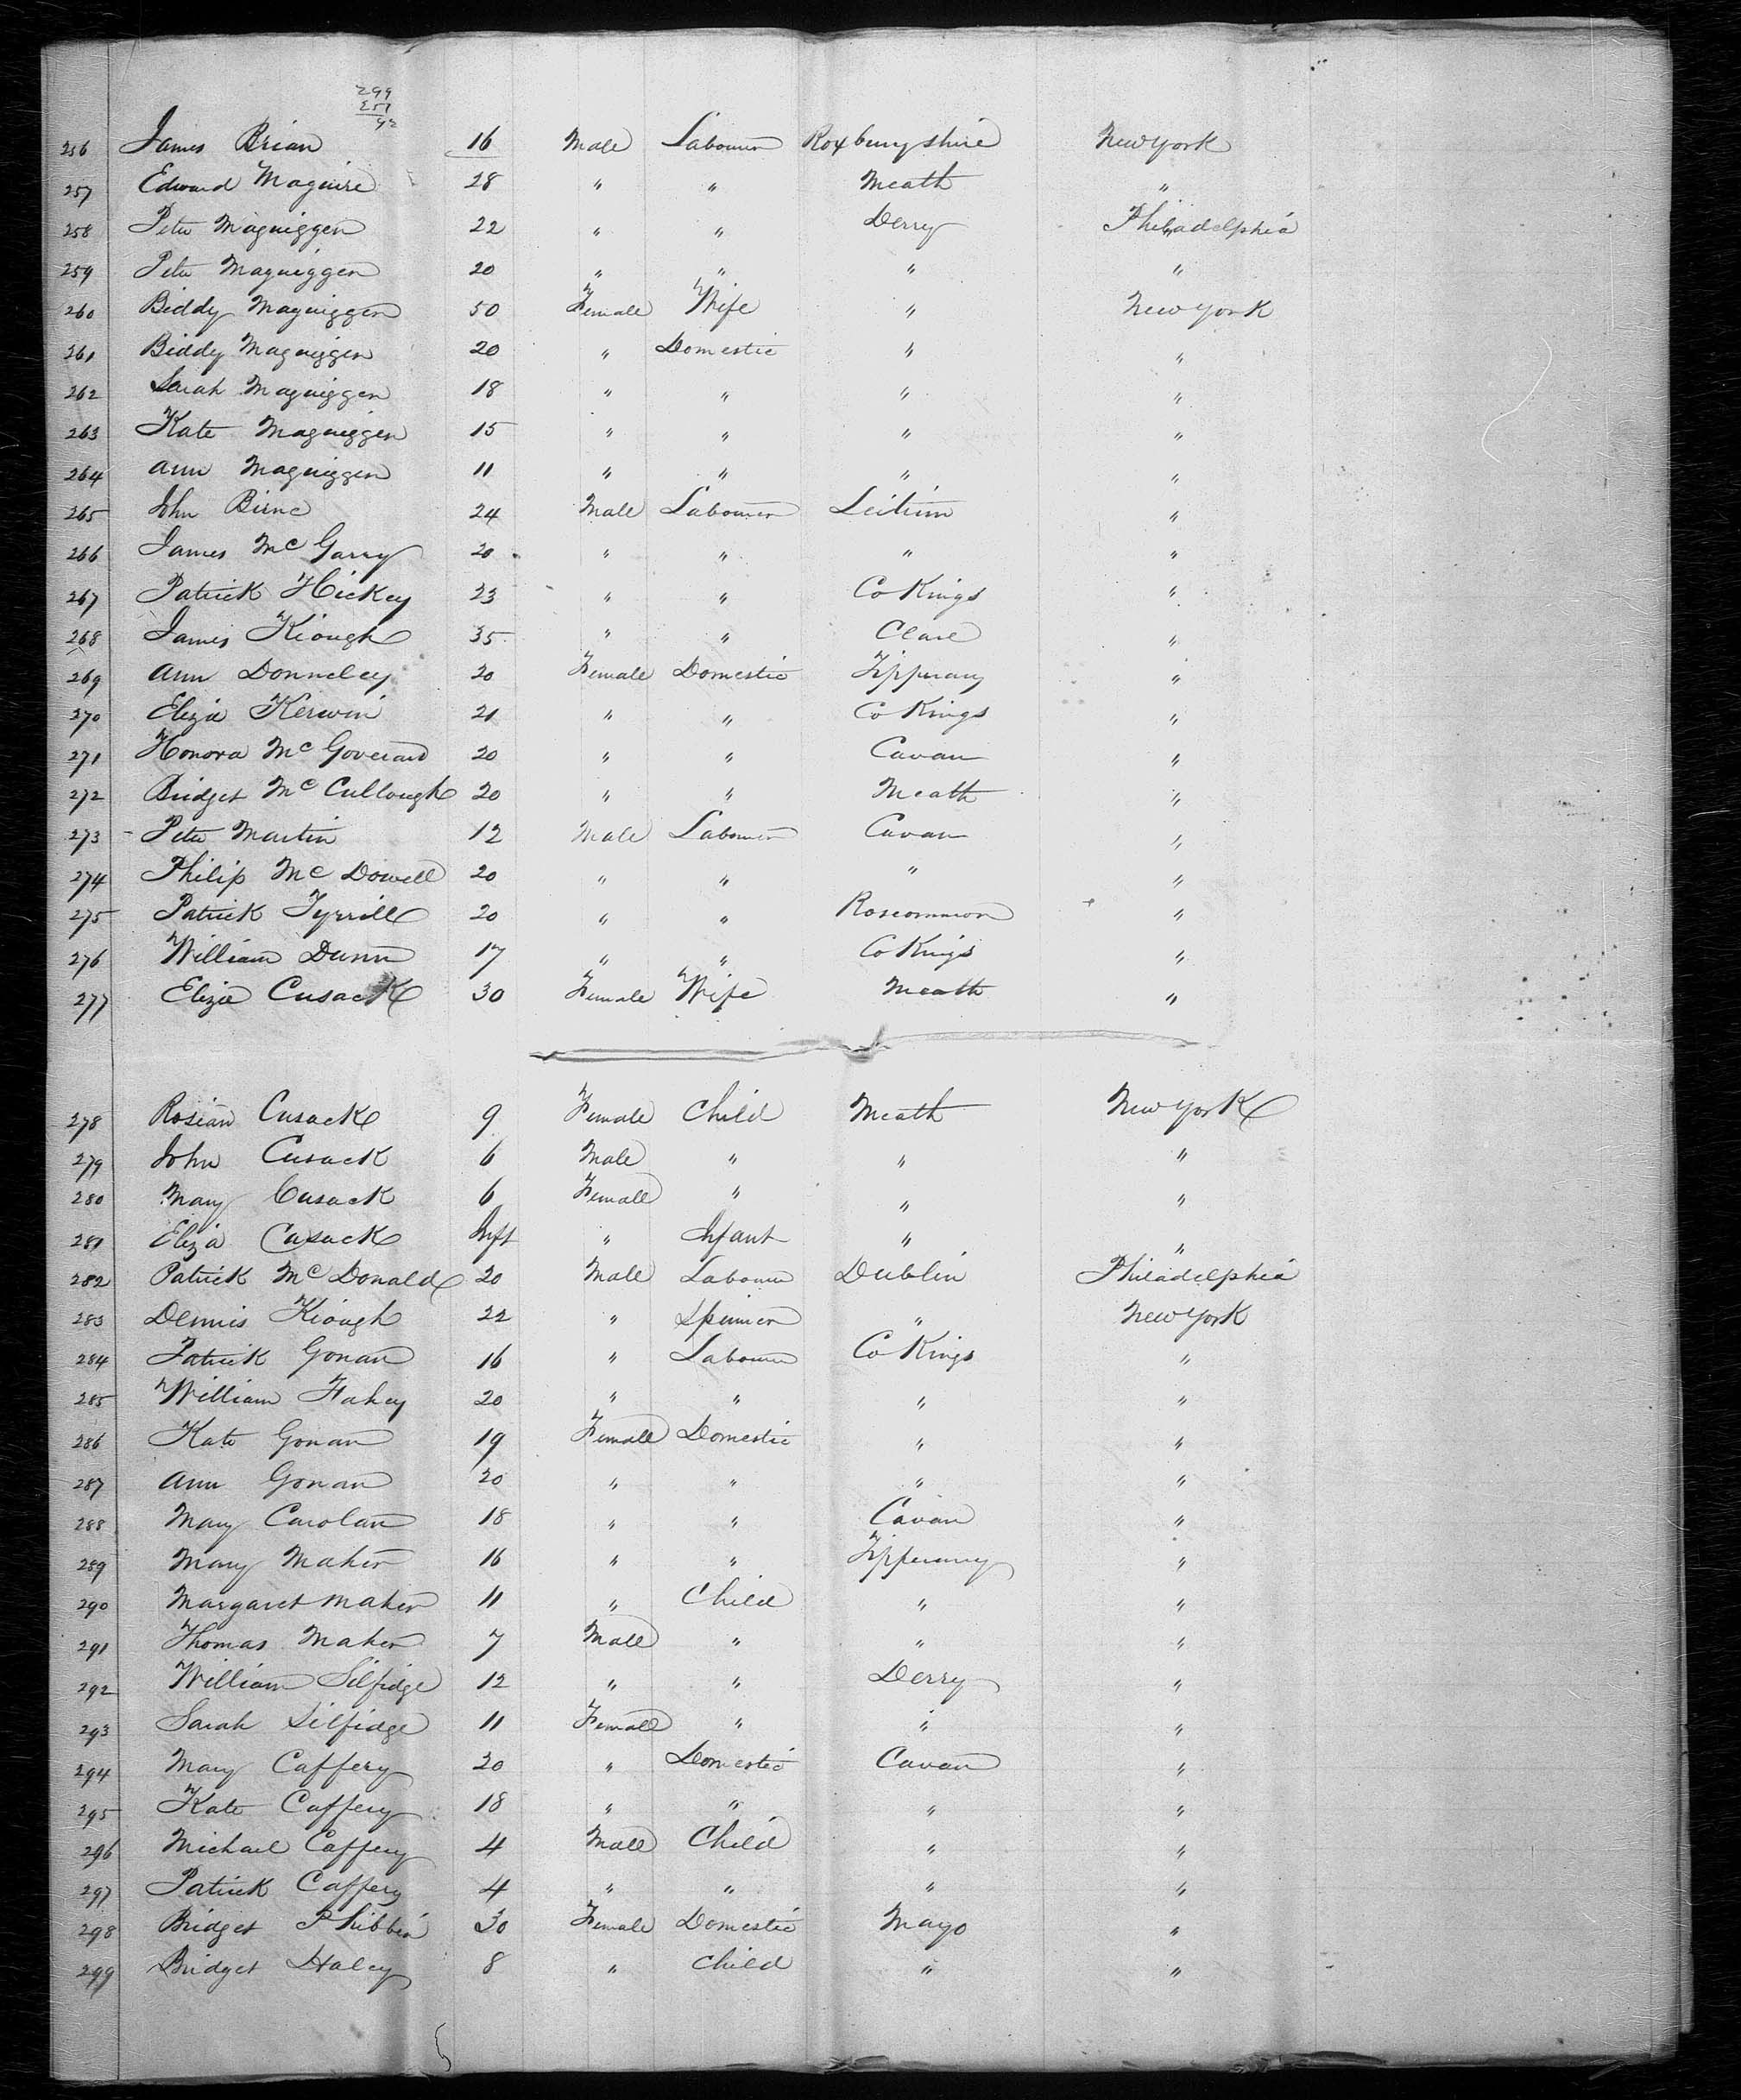 299
257
42
256 James Brian 16 Male Labourer Roxburyshire New York
257 Edward Maguire 28 " " Meath "
258 Peter Maguiggen 22 " " Derry Philadelphia
259 Peter Maguiggen 20 " " " "
260 Biddy Maguiggen 50 Female Wife " New York
261 Biddy Maguiggen 20 " Domestic " "
262 Sarah Maguiggen 18 " " " "
263 Kate Maguiggen 15 " " " "
264 Ann Maguiggen 11 " " " "
265 John Birne 24 Male Labourer Leitrim "
266 James Mc Garry 20 " " " "
267 Patrick Hickey 23 " " Co Kings "
268 James Kiough 35 " " Clare "
269 Ann Donneley 20 Female Domestic Tipperary "
270 Eliza Kerwin 21 " " Co Kings "
271 Honora Mc Goveran 20 " " Cavan "
272 Bridget Mc Cullough 20 " " Meath "
273 Peter Martin 12 Male Labourer Cavan "
274 Philip Mc Dowell 20 " " " "
275 Patrick Tyrrill 20 " " Roscommon "
276 William Dunn 17 " " Co Kings "
277 Eliza Cusack 30 Female Wife Meath "
278 Rosian Cusack 9 Female Child Meath New York
279 John Cusack 6 Male " " "
280 Mary Cusack 6 Female " " "
281 Eliza Cusack Inft " Infant " "
282 Patrick Mc Donald 20 Male Labourer Dublin Philadelphia
283 Dennis Kiough 22 " Spinner " New York
284 Patrick Gonan 16 " Labourer Co Kings "
285 William Fahey 20 " " " "
286 Kate Gonan 19 Female Domestic " "
287 Ann Gonan 20 " " " "
288 Mary Carolan 18 " " Cavan "
289 Mary Maher 16 " " Tipperary "
290 Margaret Maher 11 " Child " "
291 Thomas Maher 7 Male " " "
292 William Silfidge 12 " " Derry "
293 Sarah Silfidge 11 Female " " "
294 Mary Caffery 20 " Domestic Cavan "
295 Kate Caffery 18 " " " "
296 Michael Caffery 4 Male Child " "
297 Patrick Caffery 4 " " " "
298 Bridget Phibbin 30 Female Domestic Mayo "
299 Bridget Haley 8 " Child " "